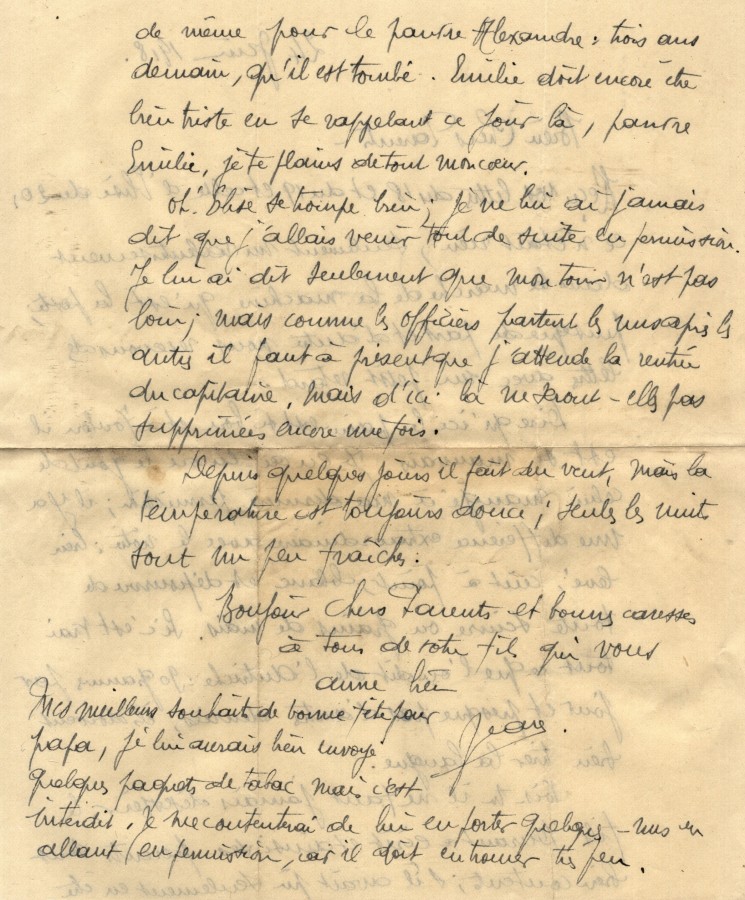 de même pour le pauvre Alexandre : trois ans
demain, qu'il est tombé. Emilie doit encore être
bien triste en se rappelant ce jour là, pauvre
Emilie, je te plains de tout mon cœur.
Oh. Elise se trompe bien ; je ne lui ai jamais
dit que j'allais venir tout de suite en permission.
Je lui ai dit seulement que mon tour n'est pas
loin ; mais comme les officiers partent les uns après les
autres il faut à présent que j'attende la rentrée
du capitaine, mais d'ici là ne seront-elles pas
supprimées encore une fois.
Depuis quelques jours il fait du vent, mais la
température est toujours douce ; seules les nuits
sont un peu fraîches.
Bonjour Chers Parents et bonnes caresses
à tous de votre fils qui vous
aime bien
Jean.
Mes meilleurs souhaits de bonne fête pour
papa, je lui aurais bien envoyé
quelques paquets de tabac mais c'est
interdit. Je me contenterai de lui en porter quelques-uns en
allant en permission, car il doit en trouver très peu.